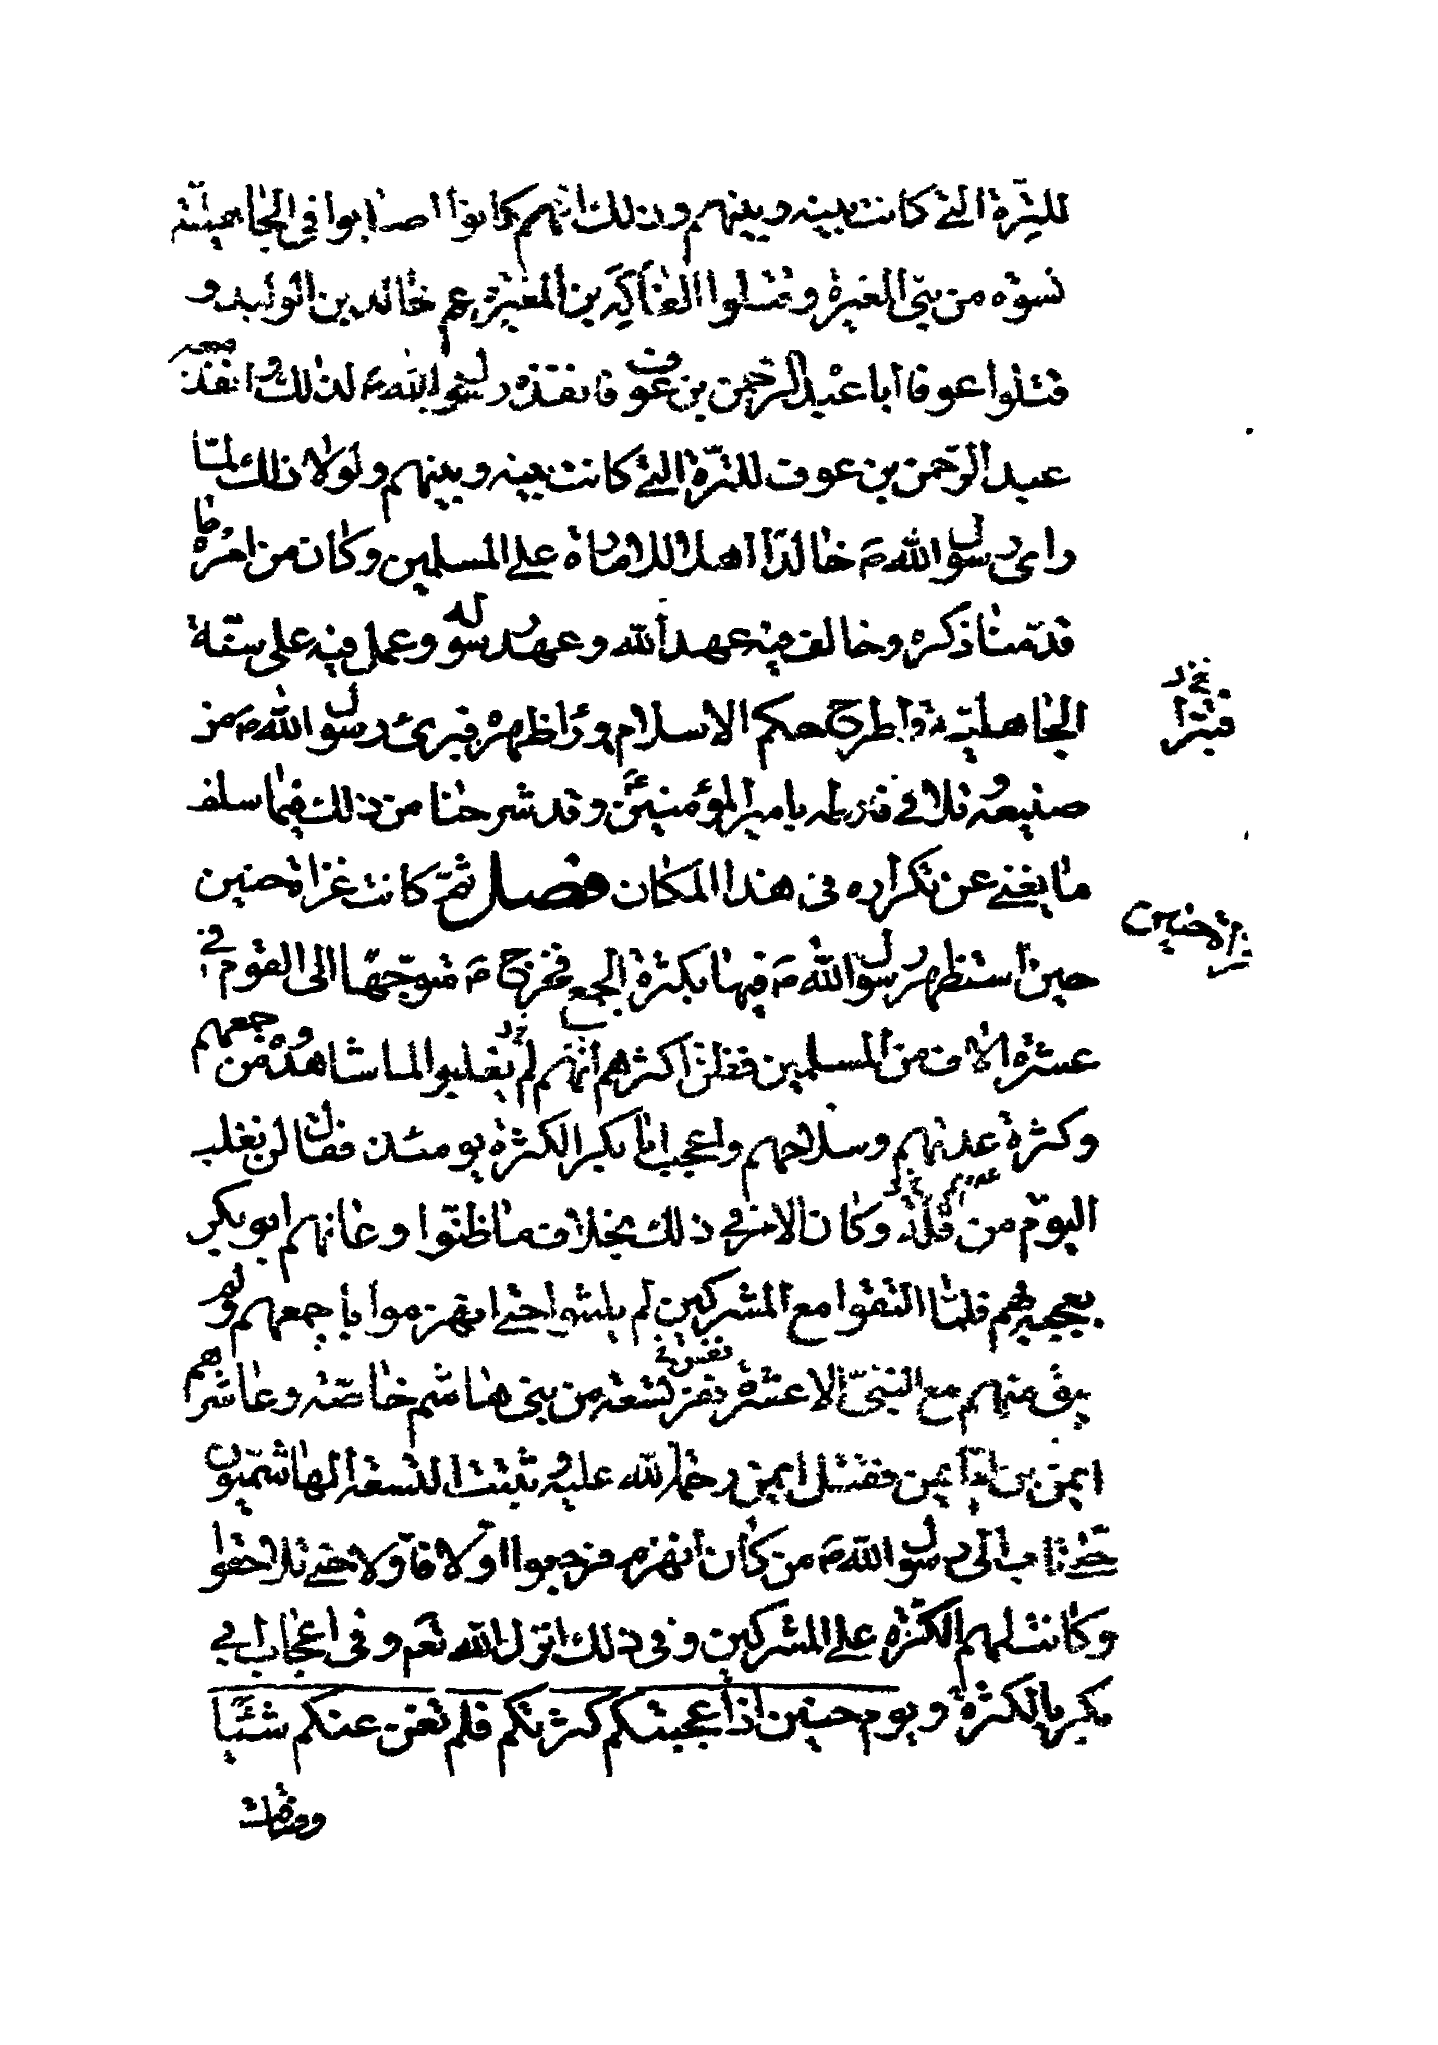 للترة التي كانت بينه وبينهم وذلك انهم كانوا اصابوا في الجاهلية
نسوة من بني المغيرة وقتلوا الفاكه بن المغيرة عم خالد بن الوليد و
قتلوا عوفا ابا عبد الرحمن بن عوف فانفذه رسول الله ص لذلك وانفذ معه
عبد الرحمن بن عوف للترة التي كانت بينه وبينهم ولولا ذلك لما
راى رسول الله ص خالدا اهلا للامارة على المسلمين وكان من امره ما
قدمنا ذكره وخالف فيه عهد الله وعهد رسوله وعمل فيه على سنة
الجاهلية واطرح حكم الاسلام وراء ظهره فبرئ رسول الله ص من
فتبرأ
صنيعه وتلافى فارطه بامير المؤمنين ع وقد شرحنا من ذلك فيما سلف
ما يغني عن تكراره في هذا المكان فصل ثم كانت غزاة حنين
غزاة حنين
حين استظهر رسول الله ص فيها بكثرة الجمع فخرج ص متوجها الى القوم في
عشرة الاف من المسلمين فظن اكثرهم انهم لم يغلبوا لما شاهدوه من جمعهم
وكثرة عدتهم وسلاحهم واعجب ابا بكر الكثرة يومئذ فقال لن نغلب
اليوم من قلة وكان الامر في ذلك بخلاف ما ظنوا وعانهم ابو بكر
بعجبه بهم فلما التقوا مع المشركين لم يلبثوا حتى انهزموا باجمعهم ولم
يبق منهم مع النبي الا عشرة نفر تسعة من بني هاشم خاصة وعاشرهم
ايمن بن ام ايمن فقتل ايمن رحمة الله عليه وثبتت التسعة الهاشميون
حتى ثاب الى رسول الله ص من كان انهزم فرجعوا اولا فاولا حتى تلاحقوا
وكانت لهم الكثرة على المشركين وفي ذلك انزل الله تعم وفي اعجاب ابي
بكر بالكثرة ويوم حنين اذ اعجبتكم كثرتكم فلم تغن عنكم شيئا
وضاقت